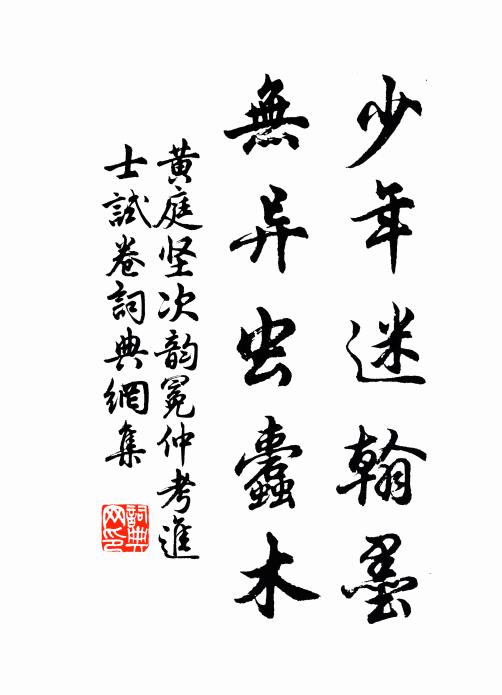 少年迷翰墨
無异虫蠹木
黄庭坚次韵冕仲考進
士試卷詞典網集
詞典网印